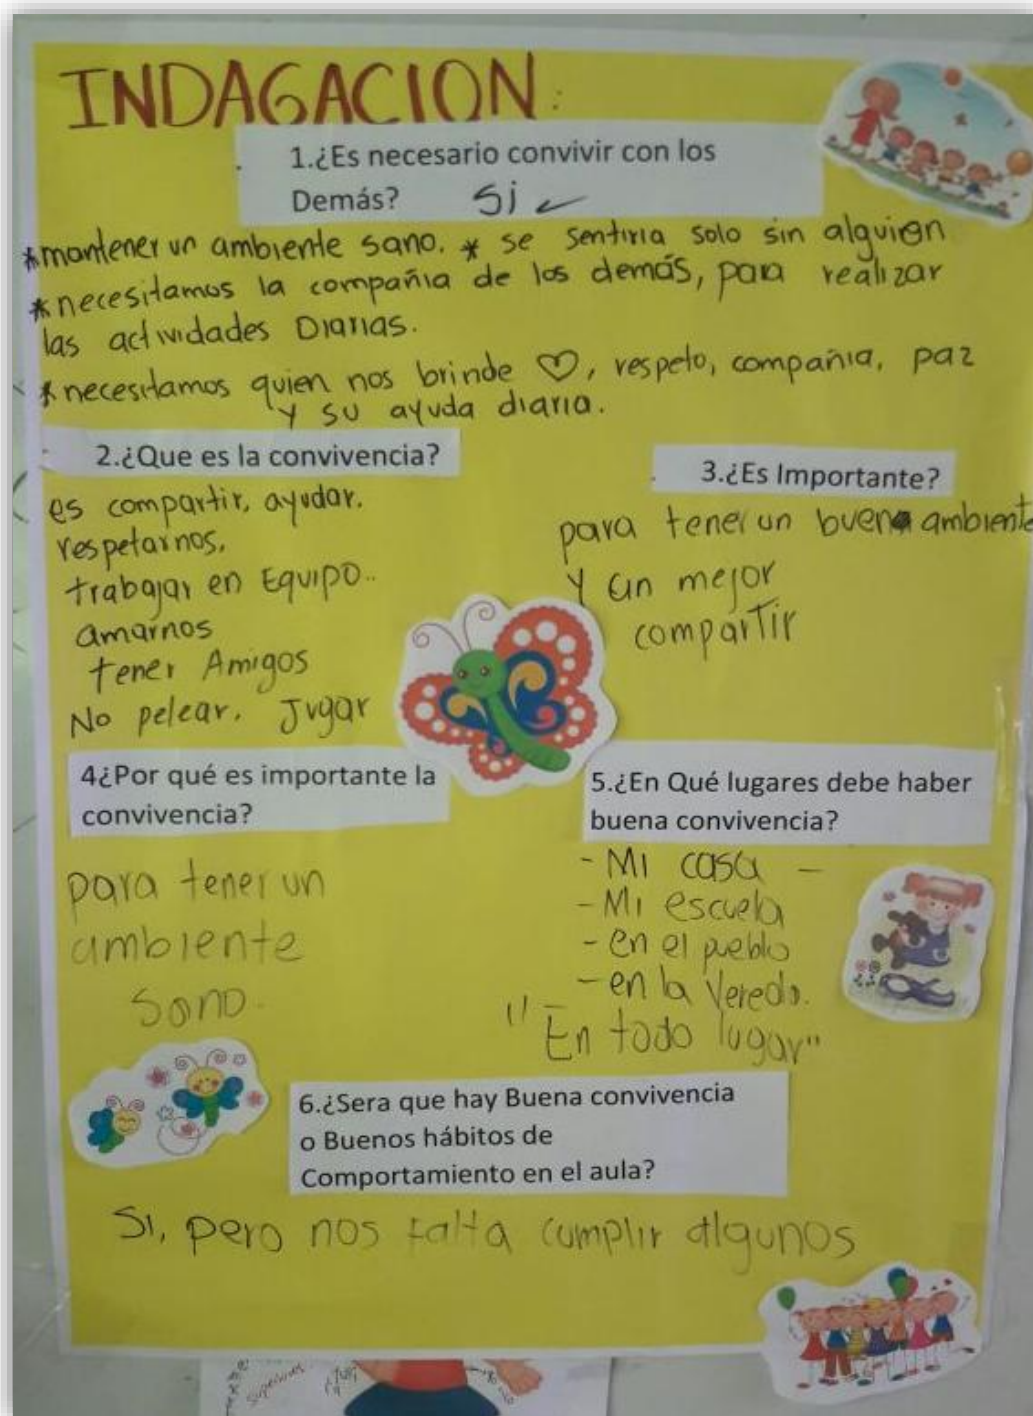 INDAGACION:
1.¿Es necesario convivir con los
Demás? Si
*mantener un ambiente sano. * se sentiria solo sin alguien
*necesitamos la compañia de los demás, para realizar
las actividades Diarias.
*necesitamos quien nos brinde ♡, respeto, compañia, paz
y su ayuda diaria.
2.¿Que es la convivencia?
es compartir, ayudar.
respetarnos,
trabajar en Equipo..
amarnos
tener Amigos
No pelear. Jugar
3.¿Es Importante?
para tener un buen ambiente
y un mejor
compartir
4¿Por qué es importante la
convivencia?
para tener un
ambiente
sano.
5.¿En Qué lugares debe haber
buena convivencia?
- Mi casa -
- Mi escuela
- en el pueblo
- en la Vereda.
"En todo lugar"
6.¿Sera que hay Buena convivencia
o Buenos hábitos de
Comportamiento en el aula?
Si, pero nos falta cumplir algunos
superiores